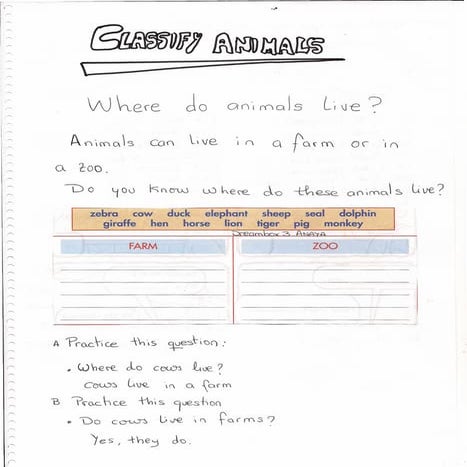 CLASSIFY ANIMALS
Where do animals live?
Animals can live in a farm or in
a zoo.
Do you know where do these animals live?
zebra cow duck elephant sheep seal dolphin
giraffe hen horse lion tiger pig monkey
Dreambox 3 ANAYA
FARM ZOO
A Practice this question:
• Where do cows live?
cows live in a farm
B Practice this question
• Do cows live in farms?
Yes, they do.